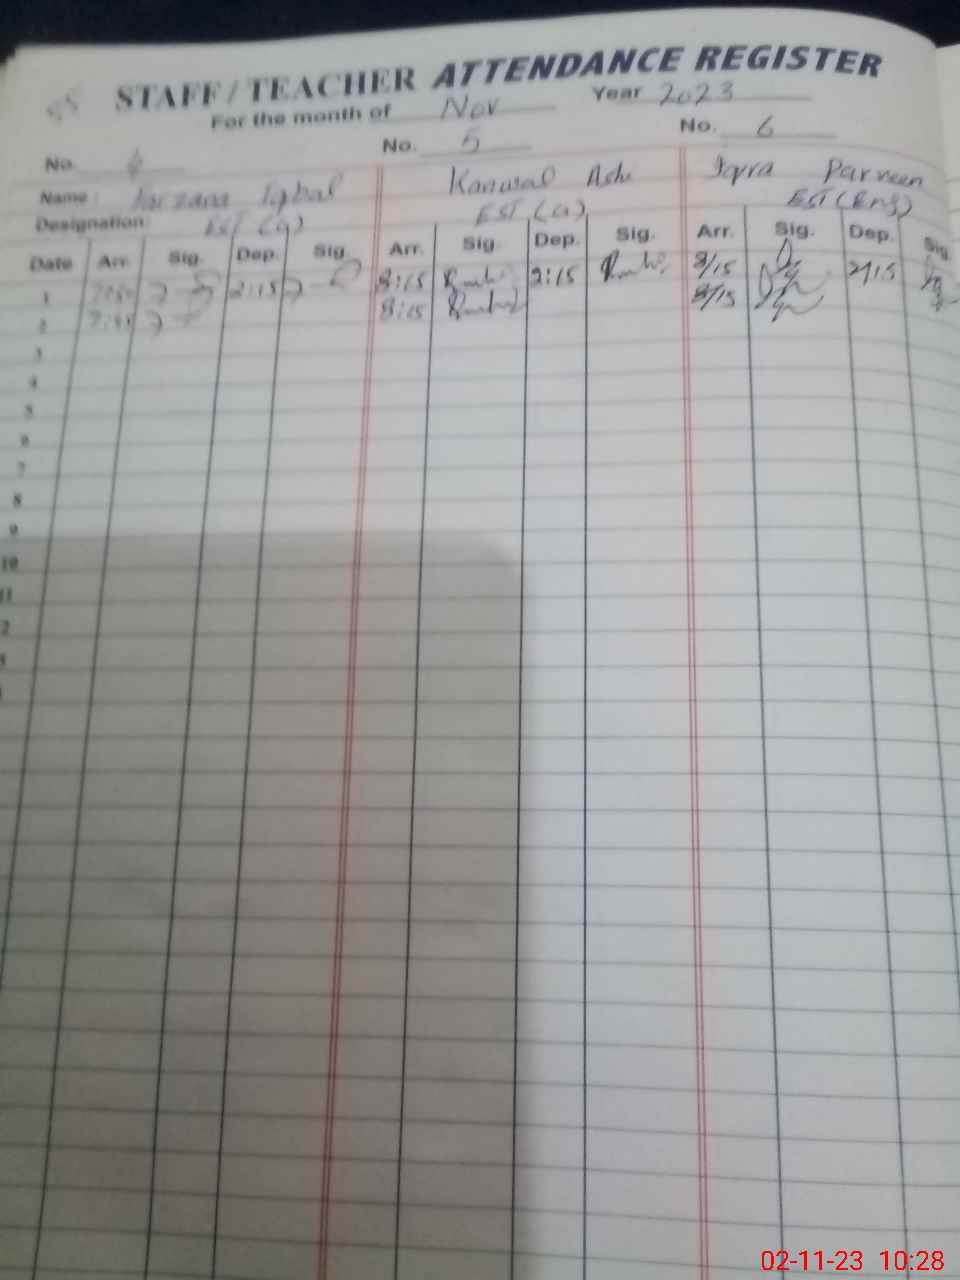 STAFF / TEACHER ATTENDANCE REGISTER
For the month of Nov Year 2023
No. 4 No. 5 No. 6
Name: Farzana Iqbal Kanwal Iqra Parveen
Designation: EST (G) EST (G) EST (Eng)
Date Arr. Sig. Dep. Sig. Arr. Sig. Dep. Sig. Arr. Sig. Dep. Sig.
1 2:15 8:15 2:15 8/15 2/15
2 8:15 8/15
3
4
5
6
7
8
9
10
11
2
3
02-11-23 10:28